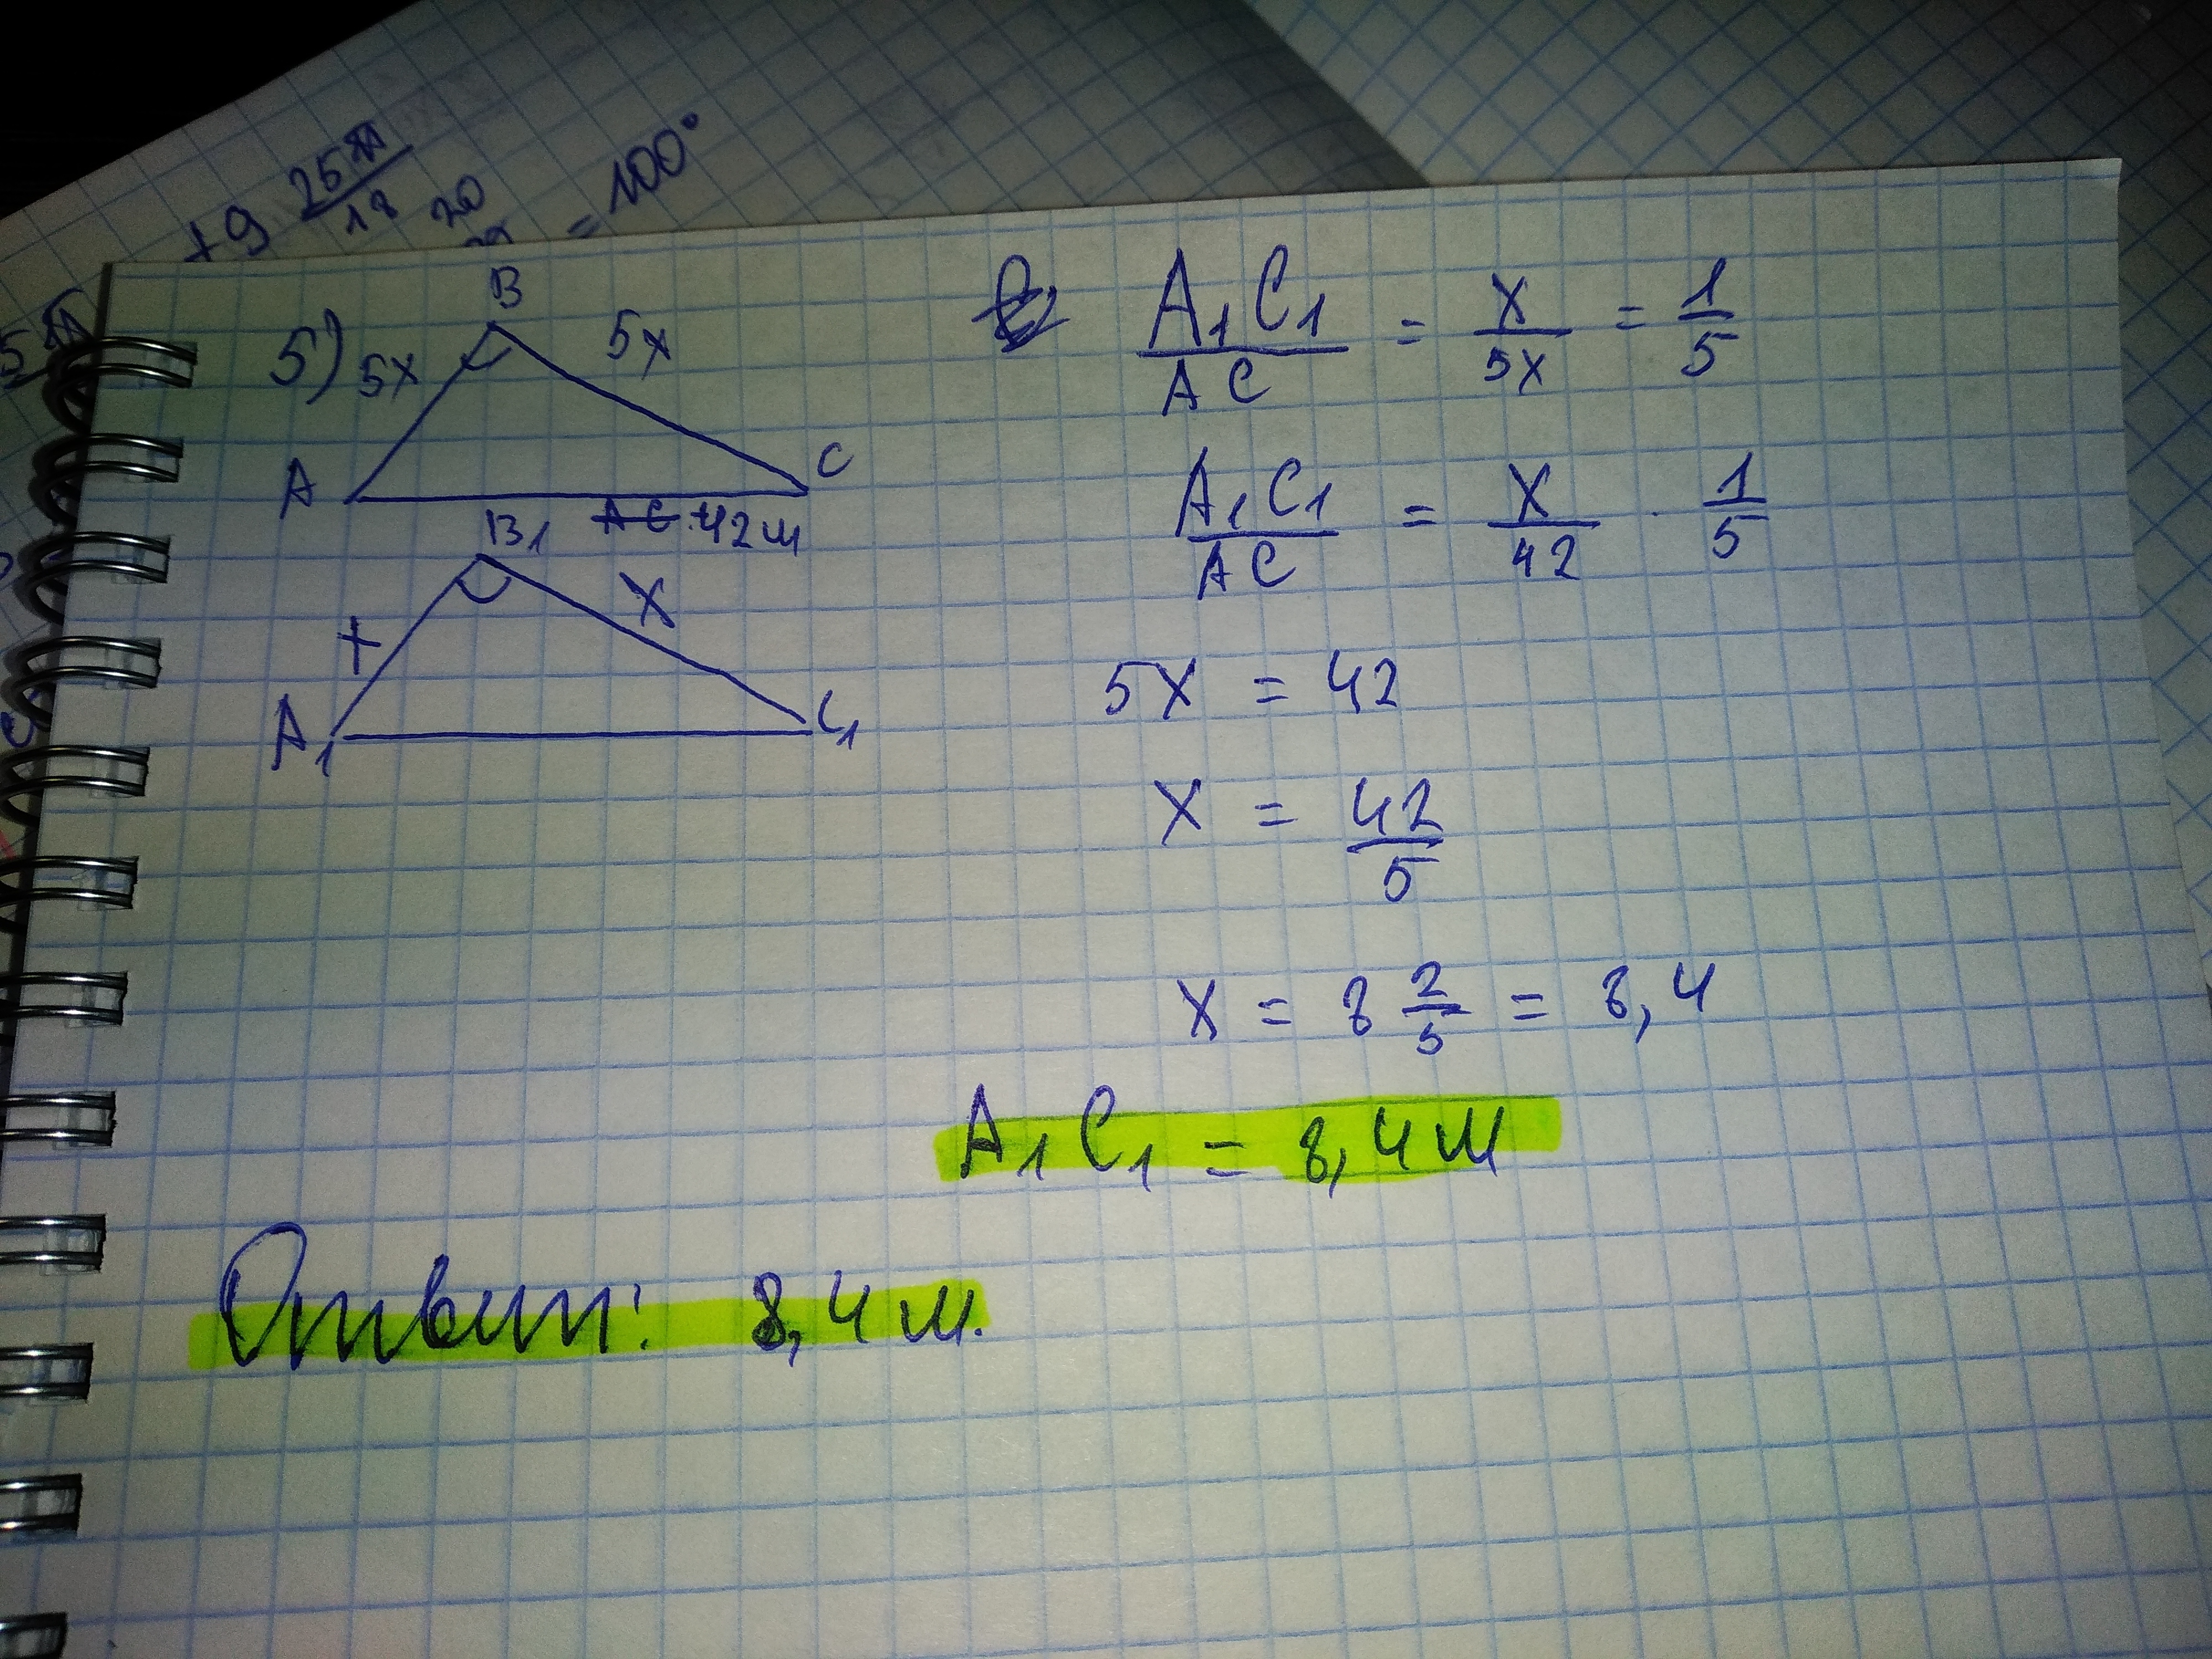 +9 25π/18
20
= 100°
5)
B
5x
5x
A
C
AC 42м
B₁
x
x
A₁
C₁
A₁C₁/AC = x/5x = 1/5
A₁C₁/AC = x/42 · 1/5
5x = 42
x = 42/5
x = 8 2/5 = 8,4
A₁C₁ = 8,4м
Ответ: 8,4м.